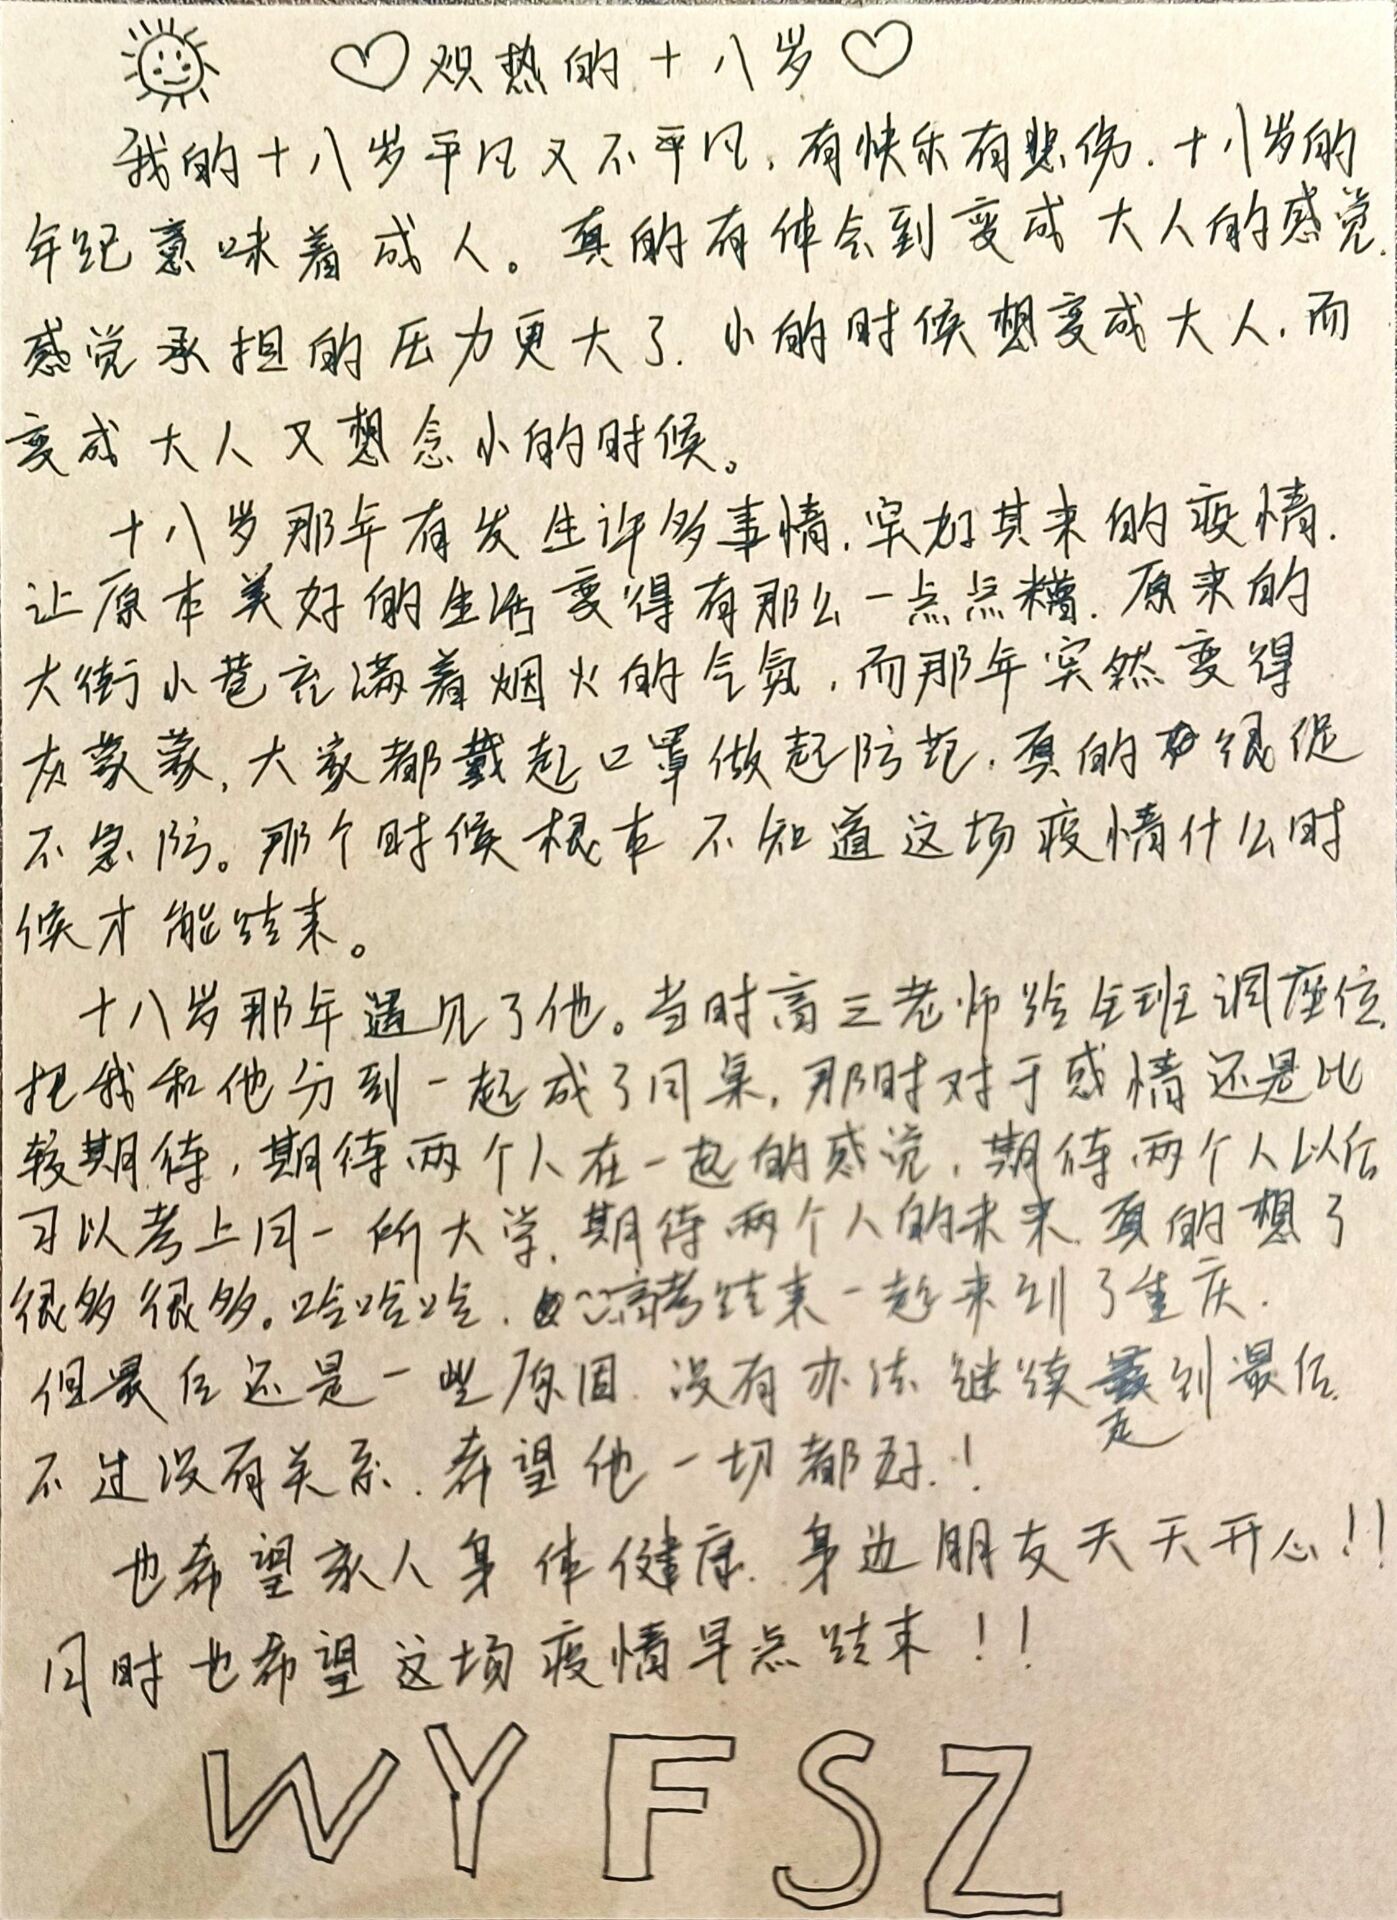 炽热的十八岁
我的十八岁平凡又不平凡，有快乐有悲伤．十八岁的
年纪意味着成人。真的有体会到变成大人的感觉．
感觉承担的压力更大了．小的时候想变成大人．而
变成大人又想念小的时候。
十八岁那年有发生许多事情．突如其来的疫情．
让原本美好的生活变得有那么一点点糟．原来的
大街小巷充满着烟火的气氛，而那年突然变得
灰蒙蒙，大家都戴起口罩做起防范．真的很促
不急防。那个时候根本不知道这场疫情什么时
候才能结束。
十八岁那年遇见了他。当时高三老师给全班调座位．
把我和他分到一起成了同桌，那时对于感情还是比
较期待，期待两个人在一起的感觉，期待两个人以后
可以考上同一所大学．期待两个人的未来．真的想了
很多很多。哈哈哈．高考结束一起来到了重庆．
但最后还是一些原因．没有办法继续走到最后．
不过没有关系．希望他一切都好．！
也希望家人身体健康．身边朋友天天开心！！
同时也希望这场疫情早点结束！！
WYFSZ